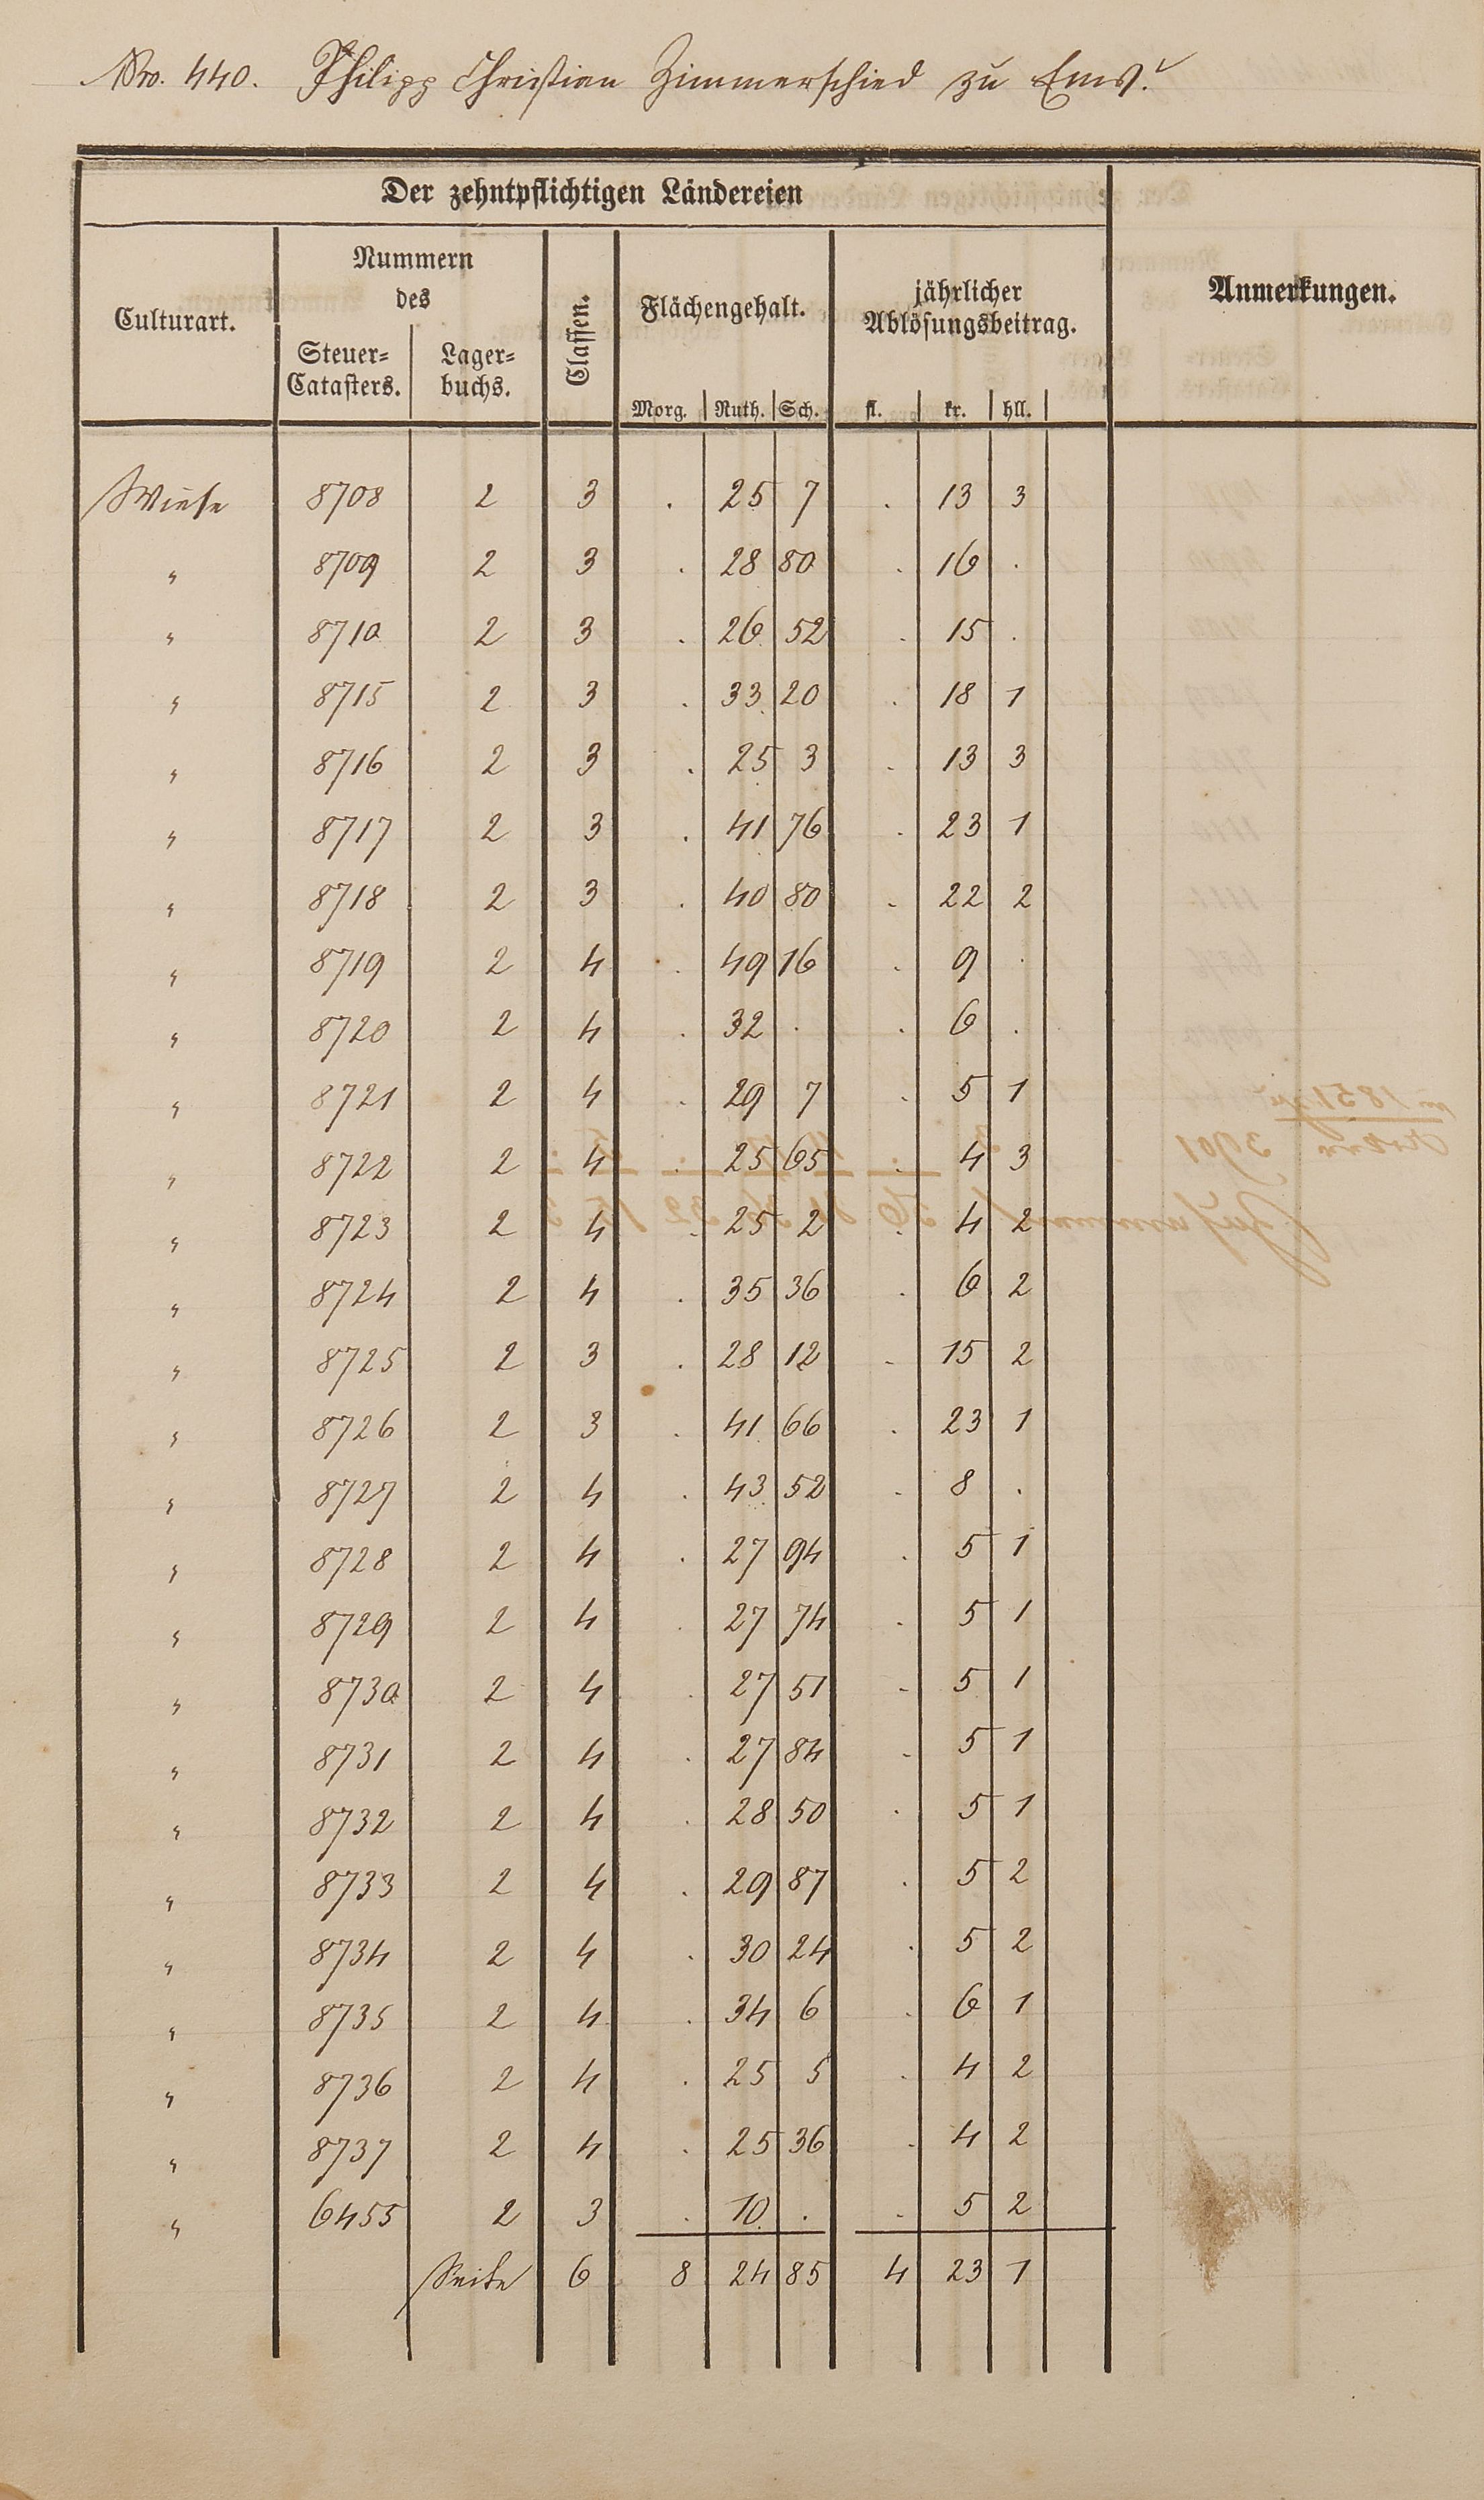 Nro. 440. Philipp Christian Zimmerschied zu Ems.
Der zehntpflichtigen Ländereien
Culturart.
Nummern
des
Steuer=
Catasters.
Lager=
buchs.
Classen.
Flächengehalt.
Morg. Ruth. Sch.
jährlicher
Ablösungsbeitrag.
fl. kr. hll.
Anmerkungen.
Wiese 8708 2 3 . 25 7 . 13 3
" 8709 2 3 . 28 80 . 16 .
" 8710 2 3 . 26 52 . 15 .
" 8715 2 3 . 33 20 . 18 1
" 8716 2 3 . 25 3 . 13 3
" 8717 2 3 . 41 76 . 23 1
" 8718 2 3 . 40 80 . 22 2
" 8719 2 4 . 49 16 . 9 .
" 8720 2 4 . 32 . . 6 .
" 8721 2 4 . 29 7 . 5 1
" 8722 2 4 . 25 65 . 4 3
" 8723 2 4 . 25 2 . 4 2
" 8724 2 4 . 35 36 . 6 2
" 8725 2 3 . 28 12 . 15 2
" 8726 2 3 . 41 66 . 23 1
" 8727 2 4 . 43 52 . 8 .
" 8728 2 4 . 27 94 . 5 1
" 8729 2 4 . 27 74 . 5 1
" 8730 2 4 . 27 51 . 5 1
" 8731 2 4 . 27 84 . 5 1
" 8732 2 4 . 28 50 . 5 1
" 8733 2 4 . 29 87 . 5 2
" 8734 2 4 . 30 24 . 5 2
" 8735 2 4 . 34 6 . 6 1
" 8736 2 4 . 25 5 . 4 2
" 8737 2 4 . 25 36 . 4 2
" 6455 2 3 . 10 . . 5 2
Seite 6 8 24 85 4 23 1